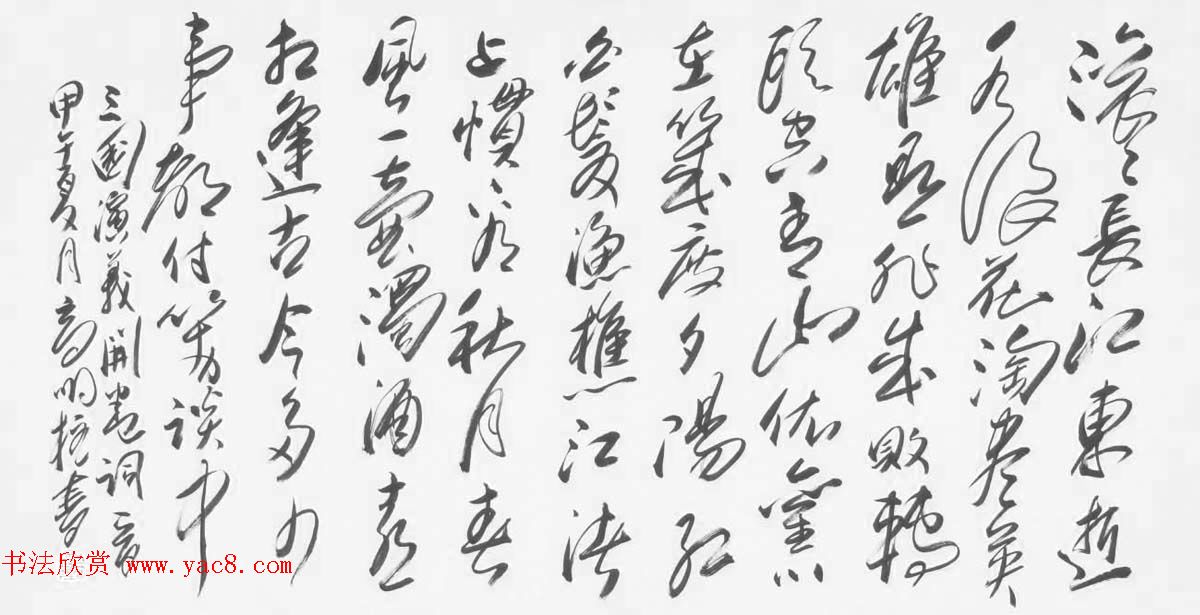 滚滚长江東逝
水浪花淘尽英
雄是非成败转
头空青山依旧
在几度夕陽红
白髮渔樵江渚
上惯看秋月春
風一壶濁酒喜
相逢古今多少
事都付笑谈中
三国演義開卷词一首
甲午夏月高明控書
书法欣赏 www.yac8.com